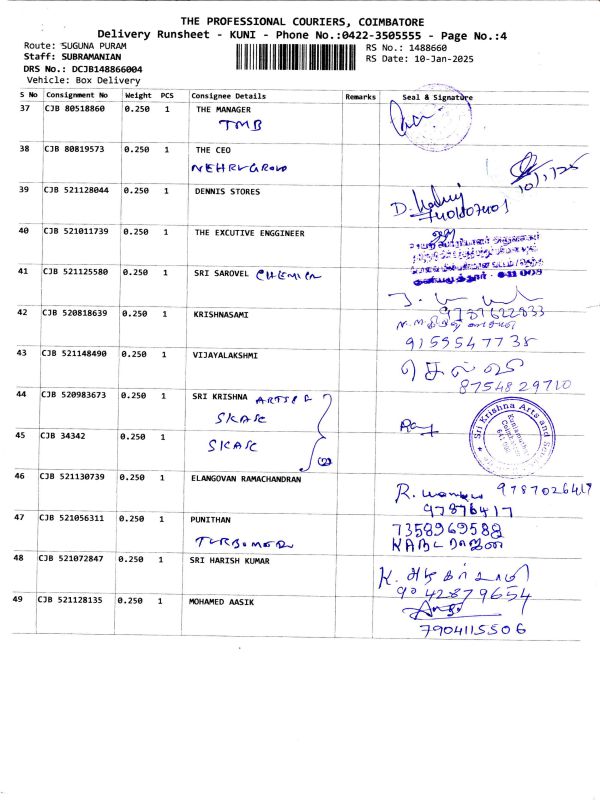 THE PROFESSIONAL COURIERS, COIMBATORE
Delivery Runsheet - KUNI - Phone No.:0422-3505555 - Page No.:4
Route: SUGUNA PURAM RS No.: 1488660
Staff: SUBRAMANIAN RS Date: 10-Jan-2025
DRS No.: DCJB148866004
Vehicle: Box Delivery
S No Consignment No Weight PCS Consignee Details Remarks Seal & Signature
37 CJB 80518860 0.250 1 THE MANAGER
TMB
38 CJB 80819573 0.250 1 THE CEO
NEHRUGROUP
10/1/25
39 CJB 521128044 0.250 1 DENNIS STORES
40 CJB 521011739 0.250 1 THE EXCUTIVE ENGGINEER
41 CJB 521125580 0.250 1 SRI SAROVEL CHEMICA
42 CJB 520818639 0.250 1 KRISHNASAMI
9787622833
9159547738
43 CJB 521148490 0.250 1 VIJAYALAKSHMI
செல்வி
8754829710
44 CJB 520983673 0.250 1 SRI KRISHNA ARTS &
SKASC
Sri Krishna Arts and
45 CJB 34342 0.250 1
SKASC
(2)
46 CJB 521130739 0.250 1 ELANGOVAN RAMACHANDRAN
9787026417
97876417
47 CJB 521056311 0.250 1 PUNITHAN
7358969588
TURBOMECH
48 CJB 521072847 0.250 1 SRI HARISH KUMAR
9042879654
49 CJB 521128135 0.250 1 MOHAMED AASIK
7904115506